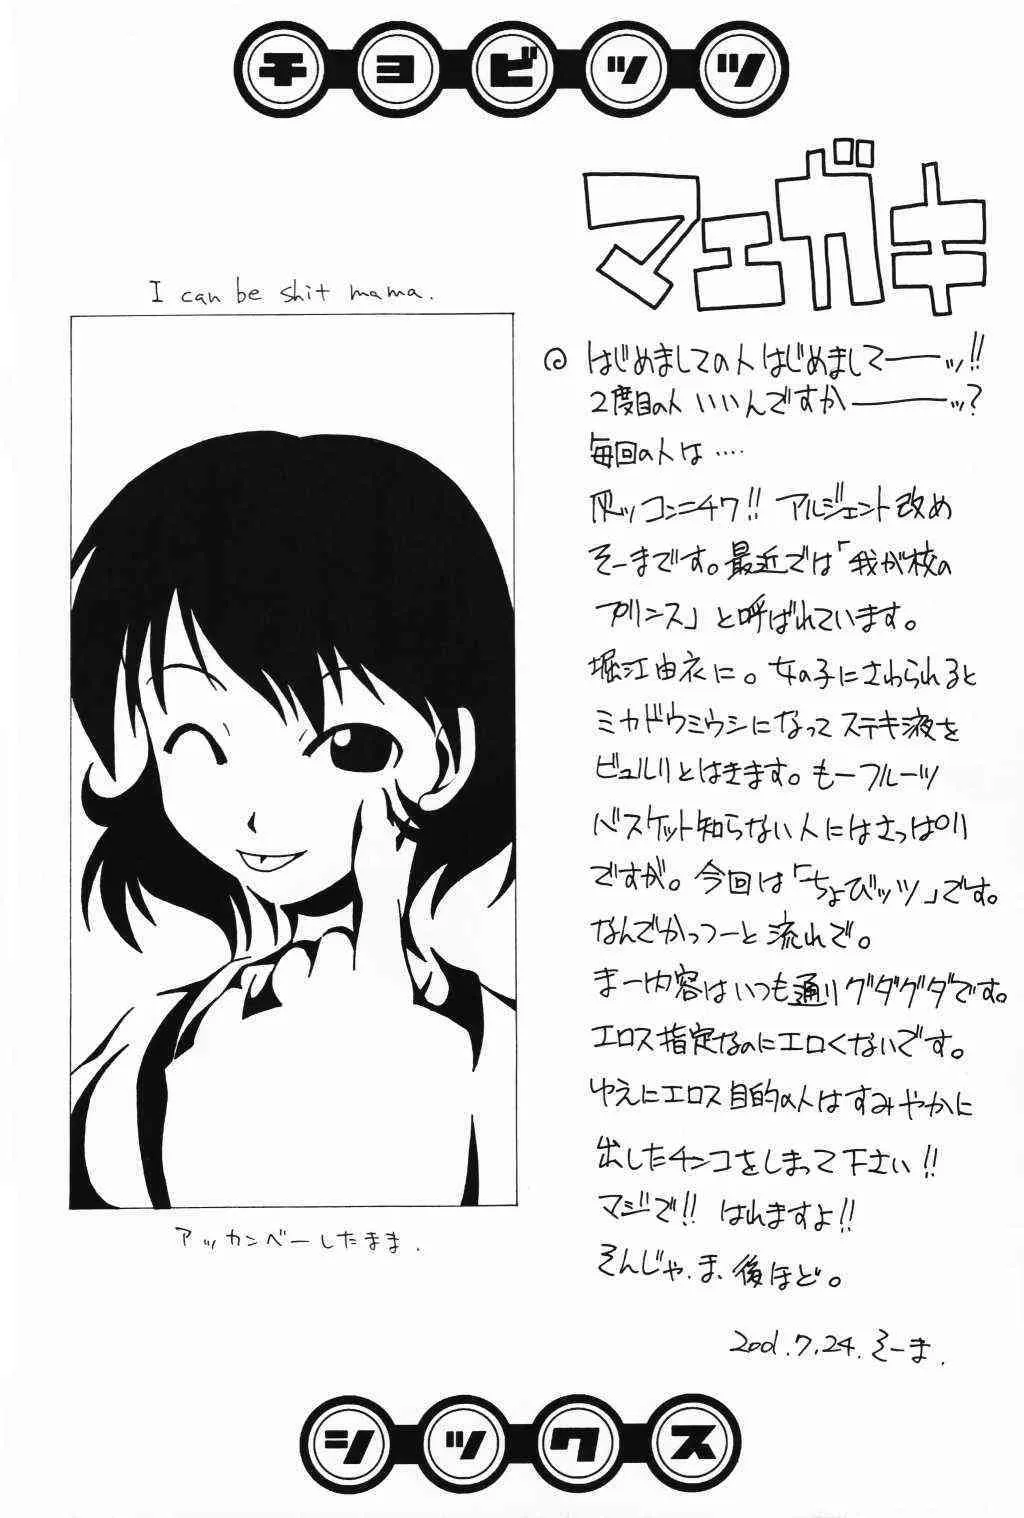 チョビッツ
マエガキ
I can be shit mama.
はじめましての人はじめましてーーッ!!
2度目の人いいんですかーーーッ?
毎回の人は‥‥
灰ッコンニチワ!! アルジェント改め
そーまです。最近では「我が校の
プリンス」と呼ばれています。
堀江由衣に。女の子にさわられると
ミカドウミウシになってステキ液を
ビュルリとはきます。もーフルーツ
バスケット知らない人にはさっぱり
ですが。今回は「ちょびッツ」です。
なんでかっつーと流れで。
まー内容はいつも通りグダグダです。
エロス指定なのにエロくないです。
ゆえにエロス目的の人はすみやかに
出したチンコをしまって下さい!!
マジで!! はれますよ!!
そんじゃ、ま、後ほど。
2001.7.24.そーま.
アッカンベーしたまま.
シックス